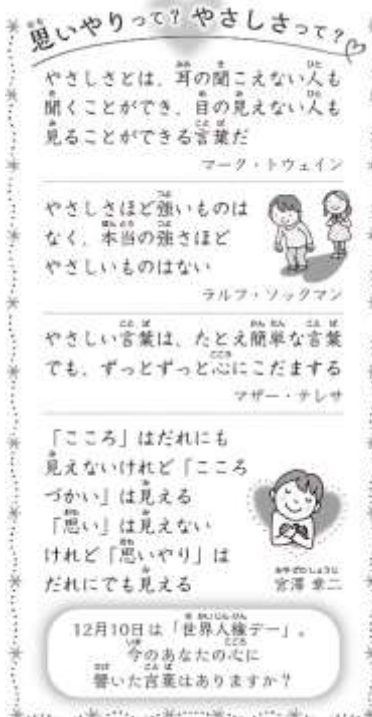 思いやりって？やさしさって？
やさしさとは、耳の聞こえない人も
聞くことができ、目の見えない人も
見ることができる言葉だ
マーク・トウェイン
やさしさほど強いものは
なく、本当の強さほど
やさしいものはない
ラルフ・ソックマン
やさしい言葉は、たとえ簡単な言葉
でも、ずっとずっと心にこだまする
マザー・テレサ
「こころ」はだれにも
見えないけれど「こころ
づかい」は見える
「思い」は見えない
けれど「思いやり」は
だれにでも見える
宮澤章二
12月10日は「世界人権デー」。
今のあなたの心に
響いた言葉はありますか？